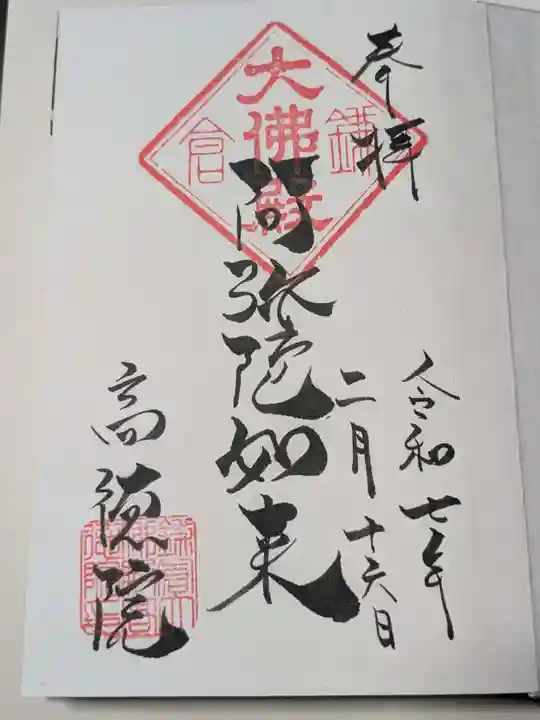 奉拝
令和七年
二月十六日
大佛殿
鎌倉
阿弥陀如来
高徳院